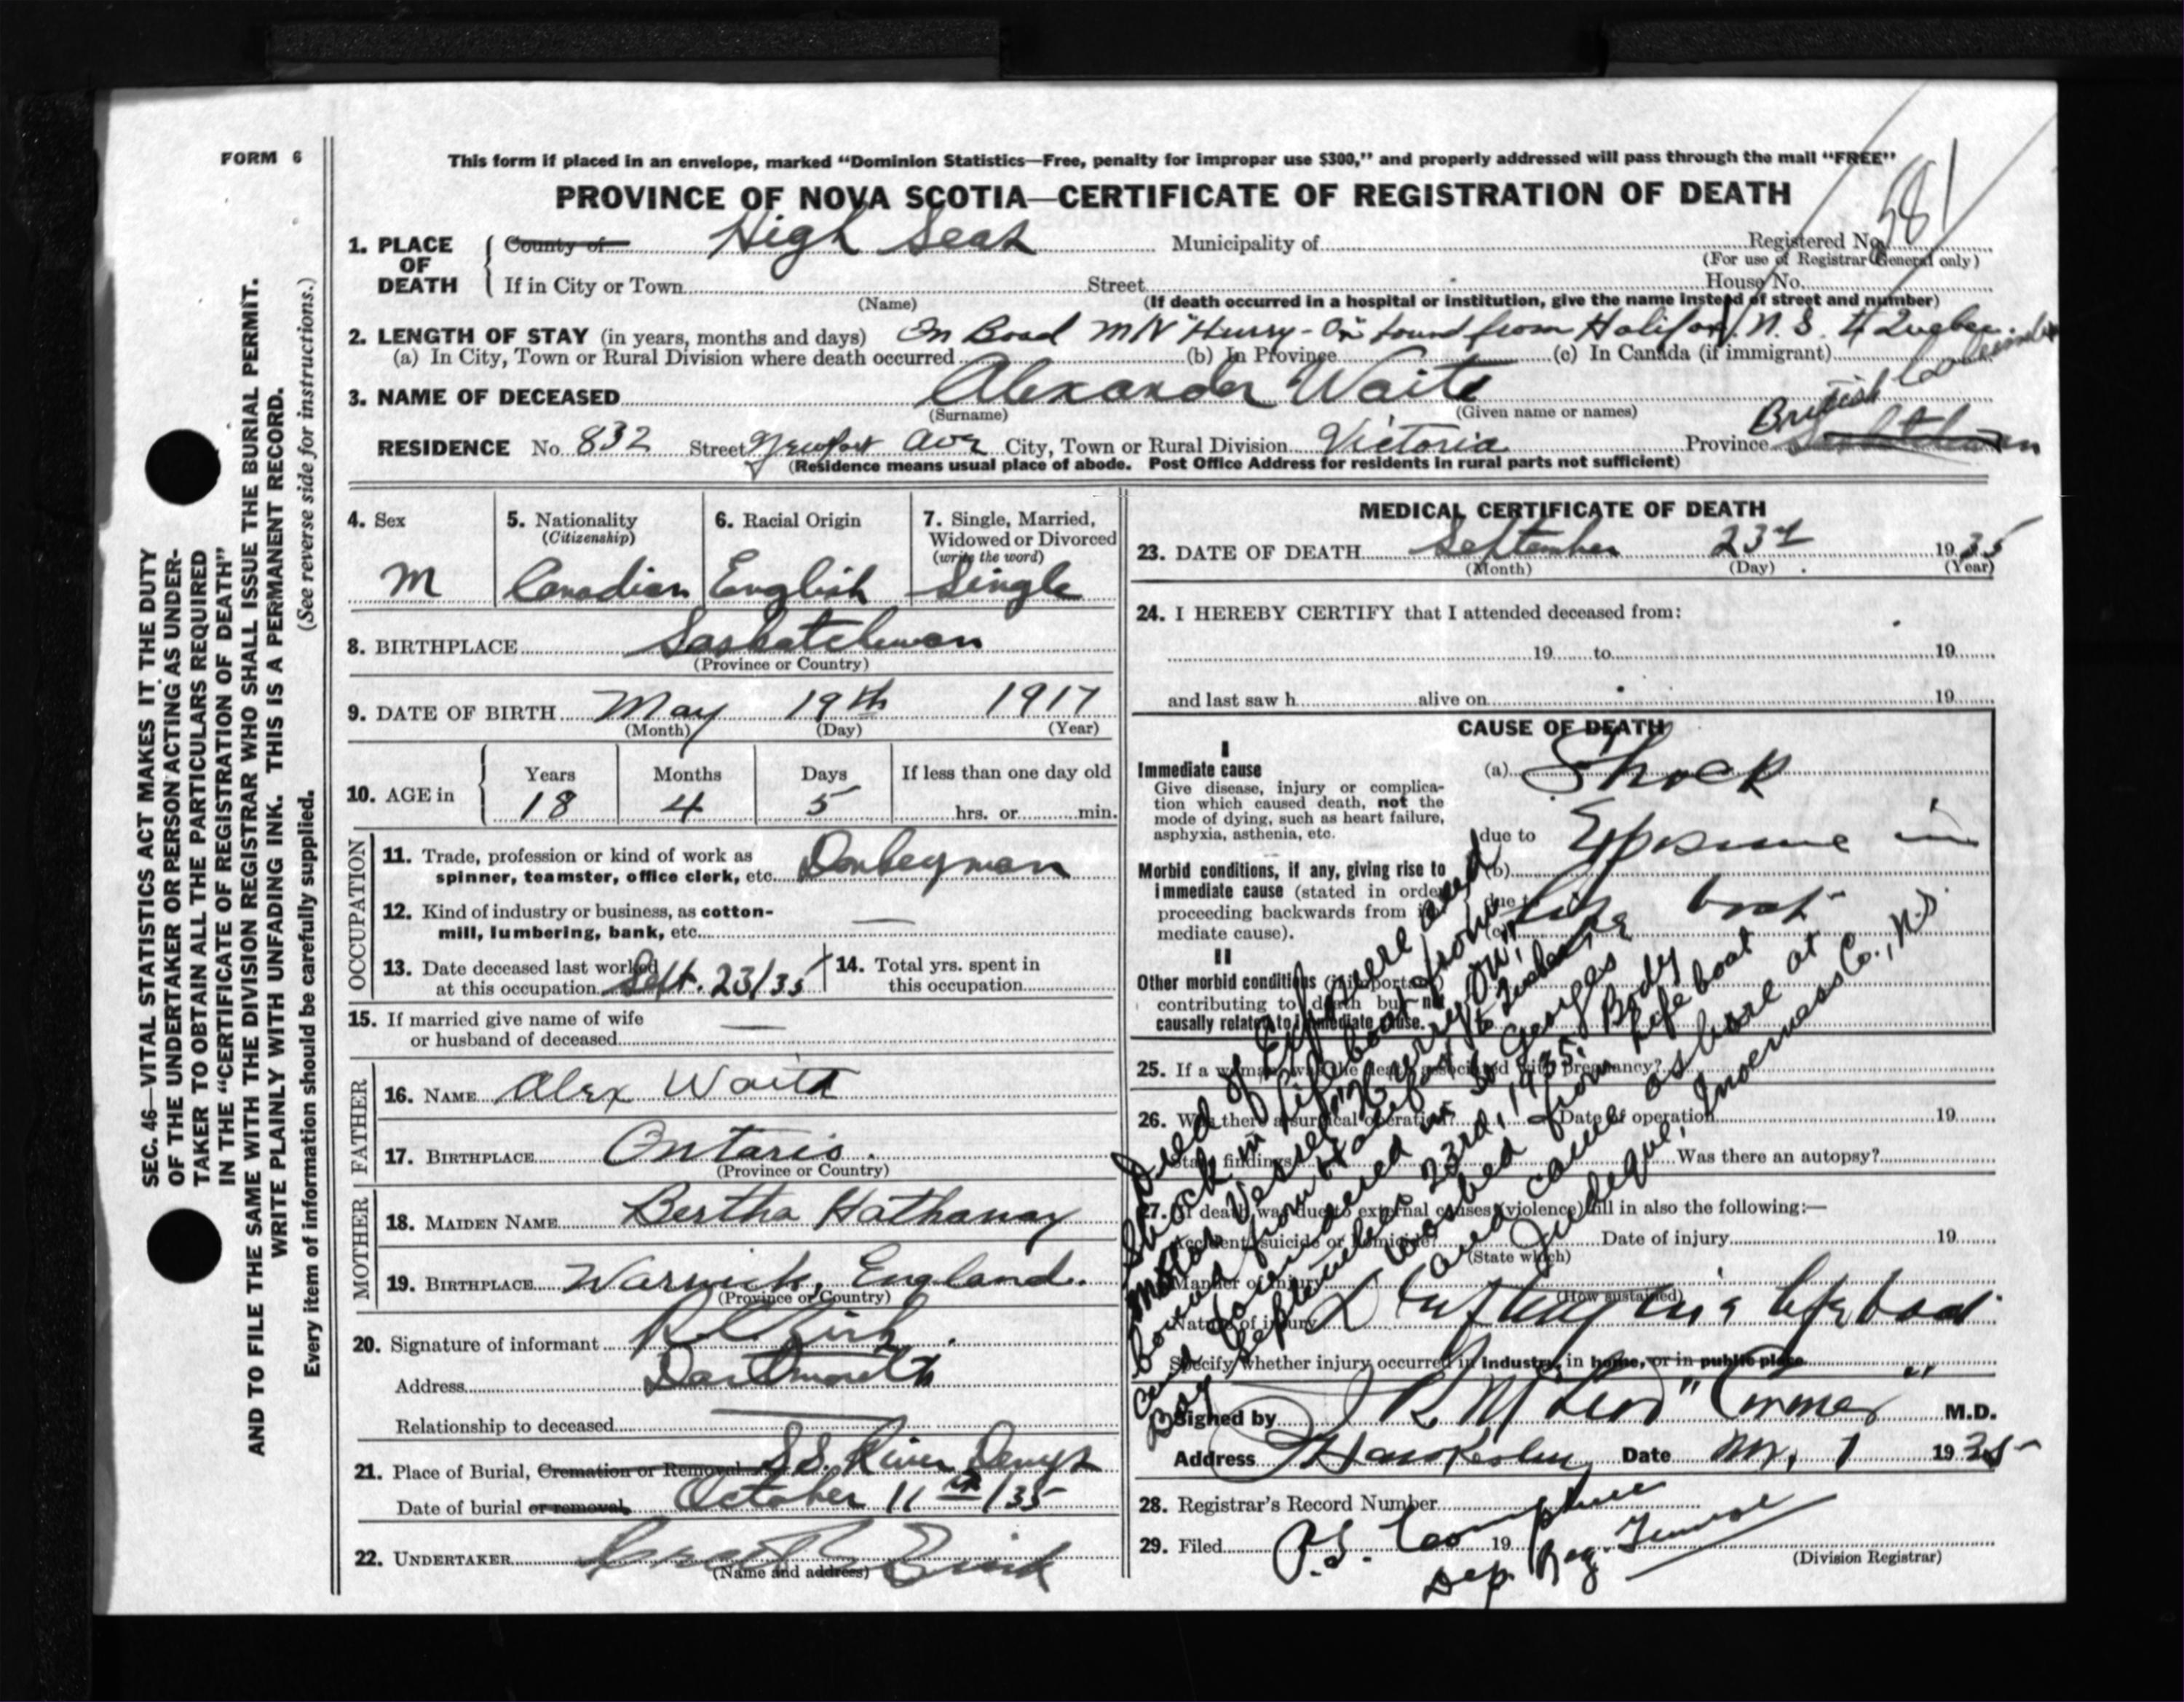 FORM 6
This form if placed in an envelope, marked "Dominion Statistics—Free, penalty for improper use $300," and properly addressed will pass through the mail "FREE"
PROVINCE OF NOVA SCOTIA—CERTIFICATE OF REGISTRATION OF DEATH
1. PLACE OF DEATH
County of High Seas Municipality of Registered No. 581
(For use of Registrar General only)
If in City or Town Street House No.
(Name) (If death occurred in a hospital or institution, give the name instead of street and number)
2. LENGTH OF STAY (in years, months and days) On Board M/V "Hurry-On" bound from Halifax, N.S. to Quebec.
(a) In City, Town or Rural Division where death occurred (b) In Province (c) In Canada (if immigrant)
3. NAME OF DECEASED Alexander Waite
(Surname) (Given name or names)
British Columbia
RESIDENCE No. 832 Street Newport Ave City, Town or Rural Division Victoria Province Saskatchewan
(Residence means usual place of abode. Post Office Address for residents in rural parts not sufficient)
4. Sex
M
5. Nationality
(Citizenship)
Canadian
6. Racial Origin
English
7. Single, Married,
Widowed or Divorced
(write the word)
Single
8. BIRTHPLACE Saskatchewan
(Province or Country)
9. DATE OF BIRTH May 19th 1917
(Month) (Day) (Year)
10. AGE in
Years Months Days If less than one day old
18 4 5 hrs. or min.
OCCUPATION
11. Trade, profession or kind of work as
spinner, teamster, office clerk, etc. Donkeyman
12. Kind of industry or business, as cotton-
mill, lumbering, bank, etc. —
13. Date deceased last worked
at this occupation Sept. 23/35
14. Total yrs. spent in
this occupation
15. If married give name of wife
or husband of deceased —
FATHER
16. NAME Alex Waite
17. BIRTHPLACE Ontario.
(Province or Country)
MOTHER
18. MAIDEN NAME Bertha Hathaway
19. BIRTHPLACE Warwick, England.
(Province or Country)
20. Signature of informant
Address Dartmouth
Relationship to deceased —
21. Place of Burial, Cremation or Removal S.S. River Denys
Date of burial or removal October 11th/35
22. UNDERTAKER
(Name and address)
MEDICAL CERTIFICATE OF DEATH
23. DATE OF DEATH September 23rd 1935
(Month) (Day) (Year)
24. I HEREBY CERTIFY that I attended deceased from:
19 to 19
and last saw h alive on 19
CAUSE OF DEATH
I
Immediate cause
Give disease, injury or complica-
tion which caused death, not the
mode of dying, such as heart failure,
asphyxia, asthenia, etc.
(a) Shock
due to Exposure in
Morbid conditions, if any, giving rise to
immediate cause (stated in order
proceeding backwards from im-
mediate cause).
(b)
due to life boat
(c)
II
Other morbid conditions (if important)
contributing to death but not
causally related to immediate cause.
25. If a woman, was the death associated with pregnancy?
26. Was there a surgical operation? Date of operation 19
State findings Was there an autopsy?
27. If death was due to external causes (violence) fill in also the following:—
Accident, suicide or homicide? Date of injury 19
(State which)
Manner of injury
(How sustained)
Nature of injury Drifting in a lifeboat
Specify whether injury occurred in industry, in home, or in public place
Died of Exposure and
Shock in Lifeboat from
Motor Vessel "Hurry On,"
bound from Halifax to Quebec
and foundered in St. Georges
Bay September 23rd, 1935. Body
washed from Lifeboat
and came ashore at
Judeque, Inverness Co., N.S.
Signed by "Coroner" M.D.
Address Hawkesbury Date Nov. 1 1935
28. Registrar's Record Number
29. Filed P.S. 19
Dep. Reg.
(Division Registrar)
SEC. 46—VITAL STATISTICS ACT MAKES IT THE DUTY
OF THE UNDERTAKER OR PERSON ACTING AS UNDER-
TAKER TO OBTAIN ALL THE PARTICULARS REQUIRED
IN THE "CERTIFICATE OF REGISTRATION OF DEATH"
AND TO FILE THE SAME WITH THE DIVISION REGISTRAR WHO SHALL ISSUE THE BURIAL PERMIT.
WRITE PLAINLY WITH UNFADING INK. THIS IS A PERMANENT RECORD.
Every item of information should be carefully supplied. (See reverse side for instructions.)